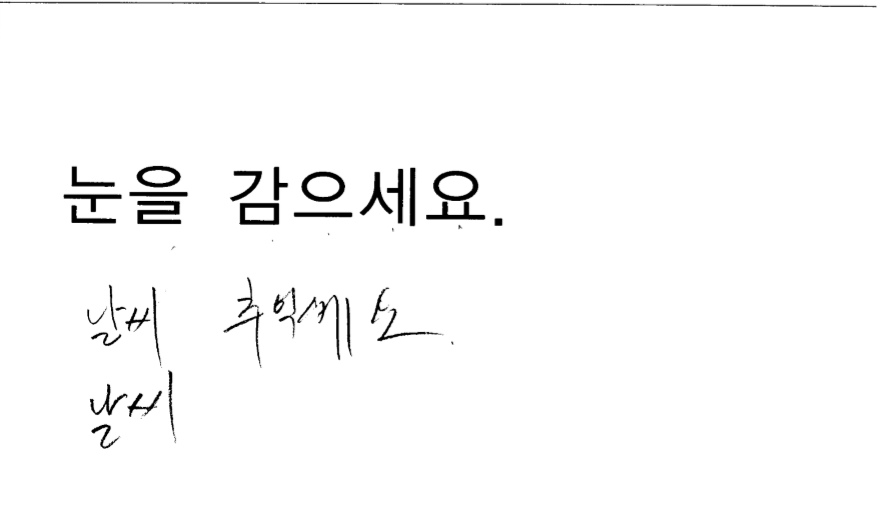 눈을 감으세요.
날씨 추억세요.
날씨